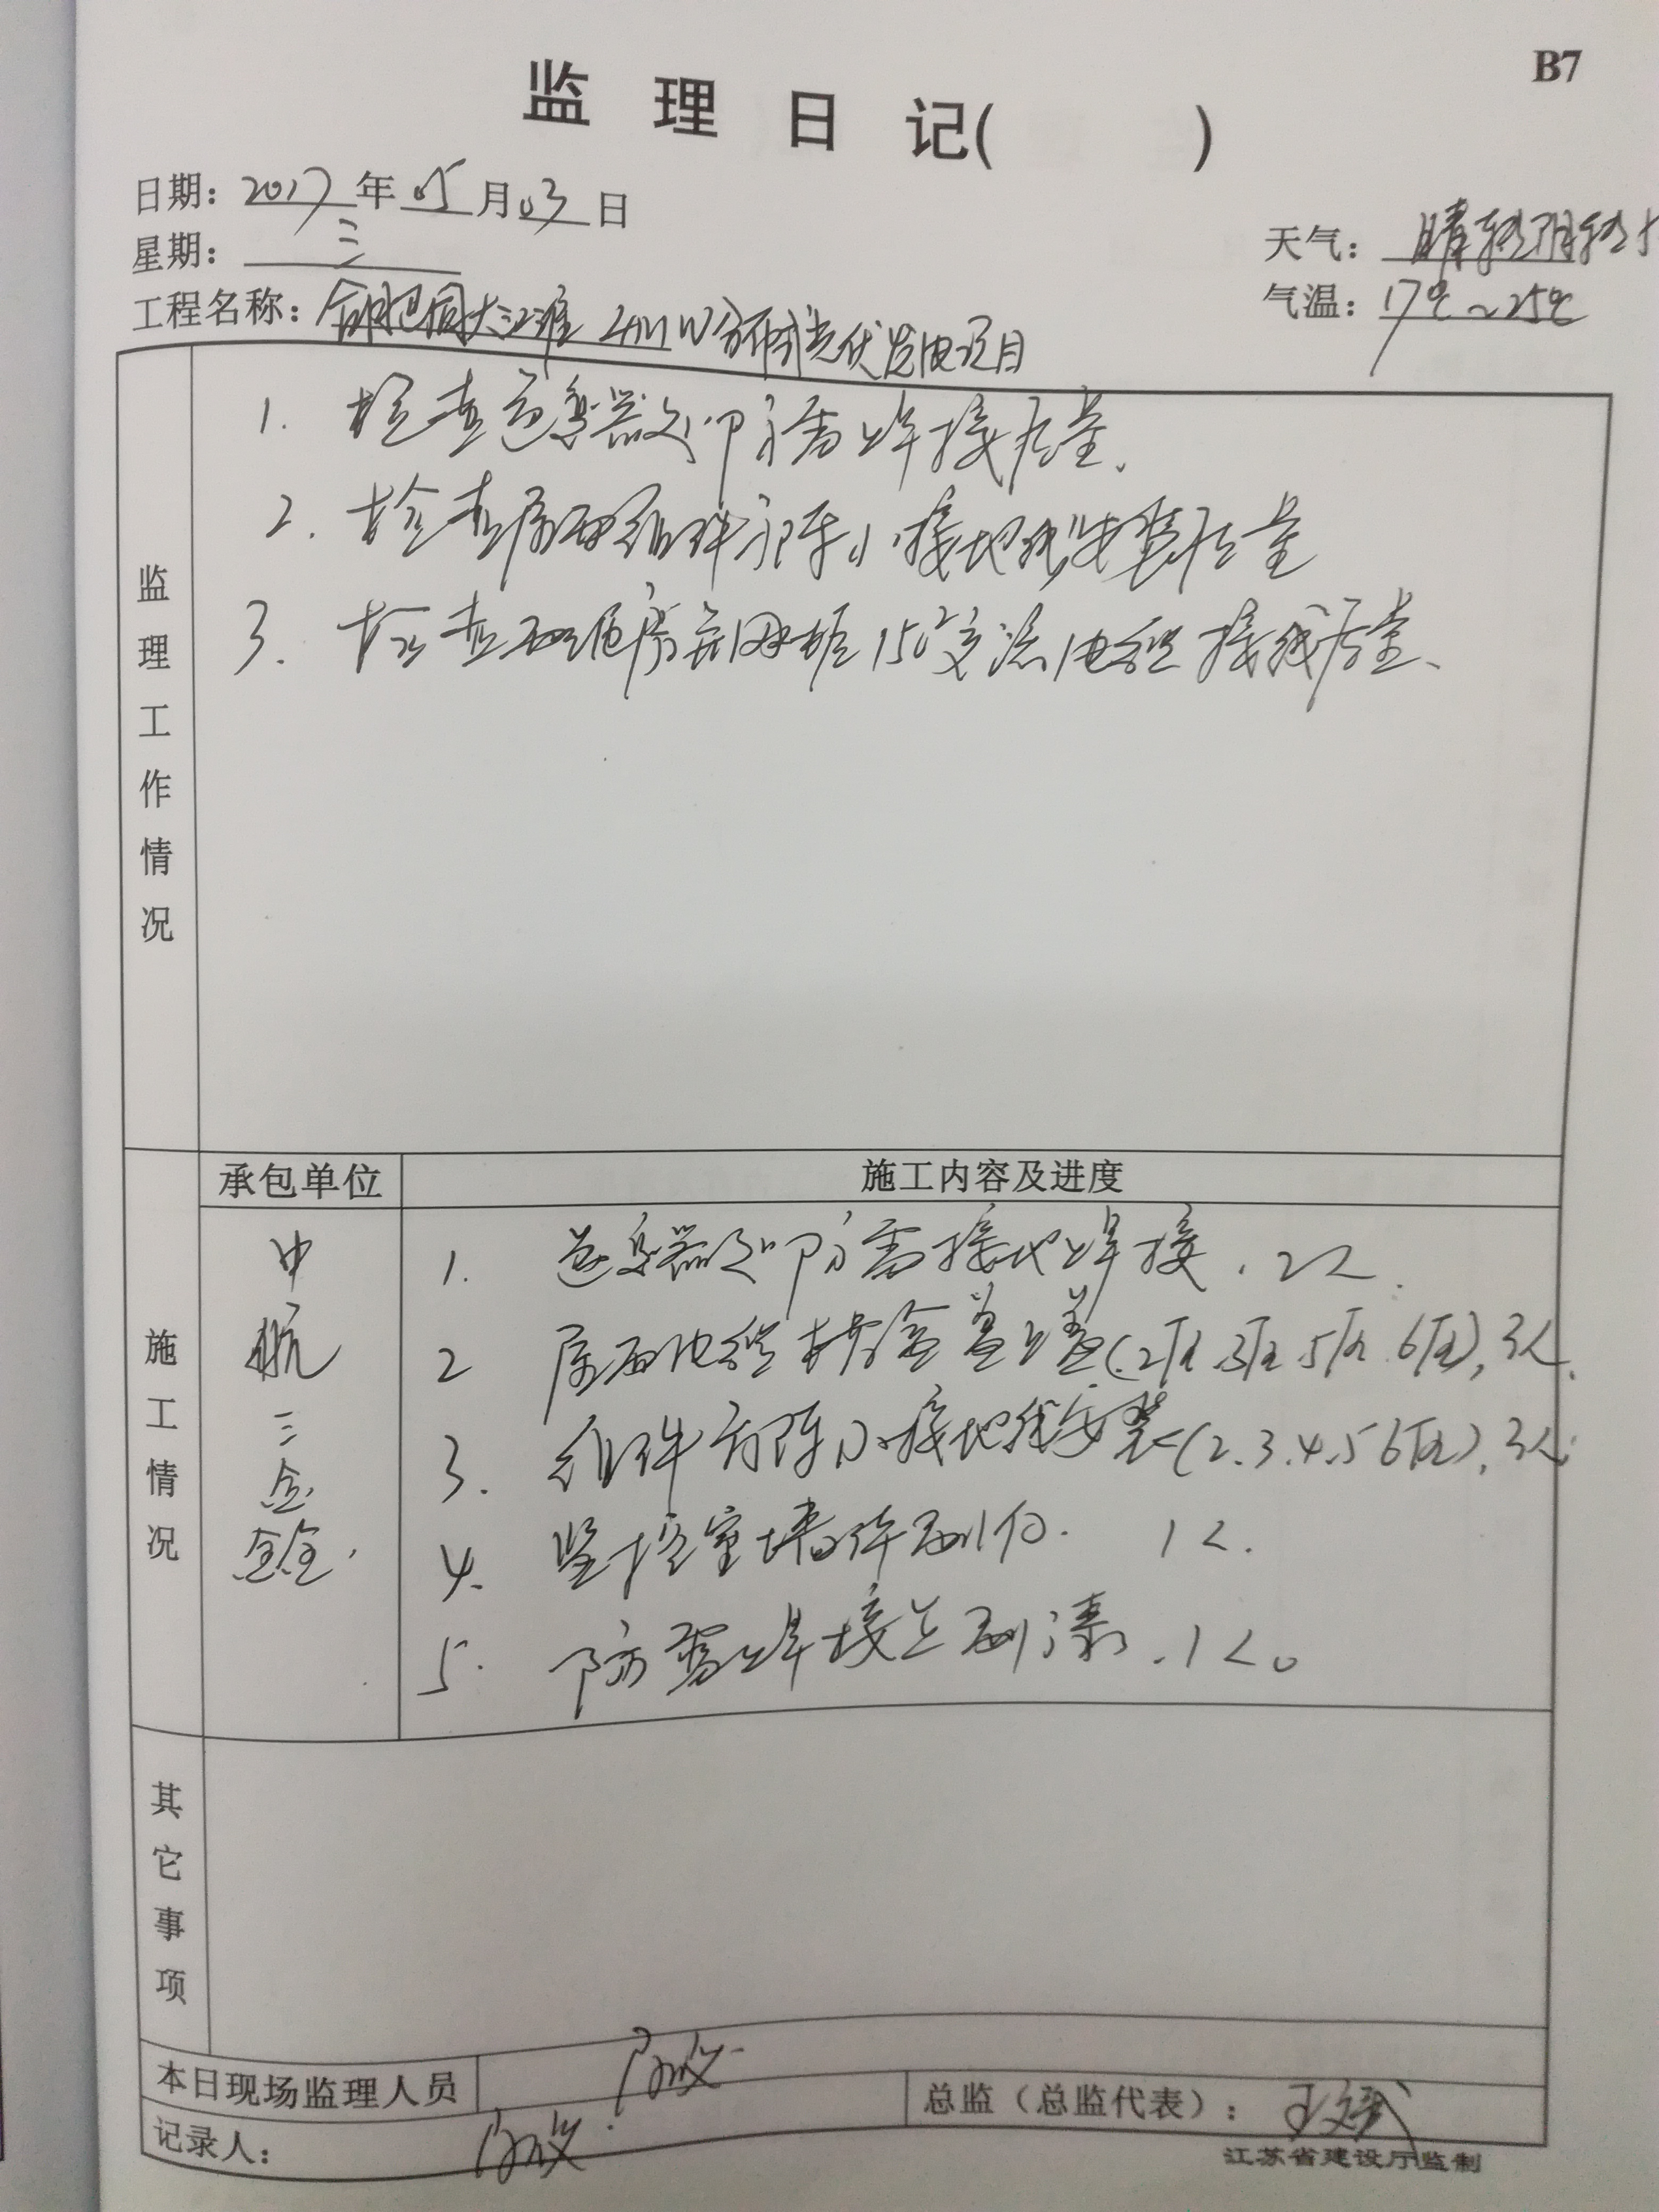 B7
监理日记( )
日期: 2017年05月03日
星期: 三
天气: 晴转阴转
气温: 17℃~25℃
工程名称: 合肥同大江淮4MW分布式光伏发电项目
监理工作情况
1. 检查逆变器处防雷焊接质量.
2. 检查屋面组件方阵小接地线安装质量
3. 检查配电房并网柜150²交流电缆接线质量、
承包单位
施工内容及进度
施工情况
中航三鑫
1. 逆变器处防雷接地焊接. 2人.
2 屋面电缆桥架盖盖(2库.3库.5库.6库), 3人.
3. 组件方阵小接地线安装(2.3.4.5 6库), 3人.
4. 监控室墙体刷白. 1人.
5. 防雷焊接点刷漆. 1人。
其它事项
本日现场监理人员
总监（总监代表）:
记录人:
江苏省建设厅监制